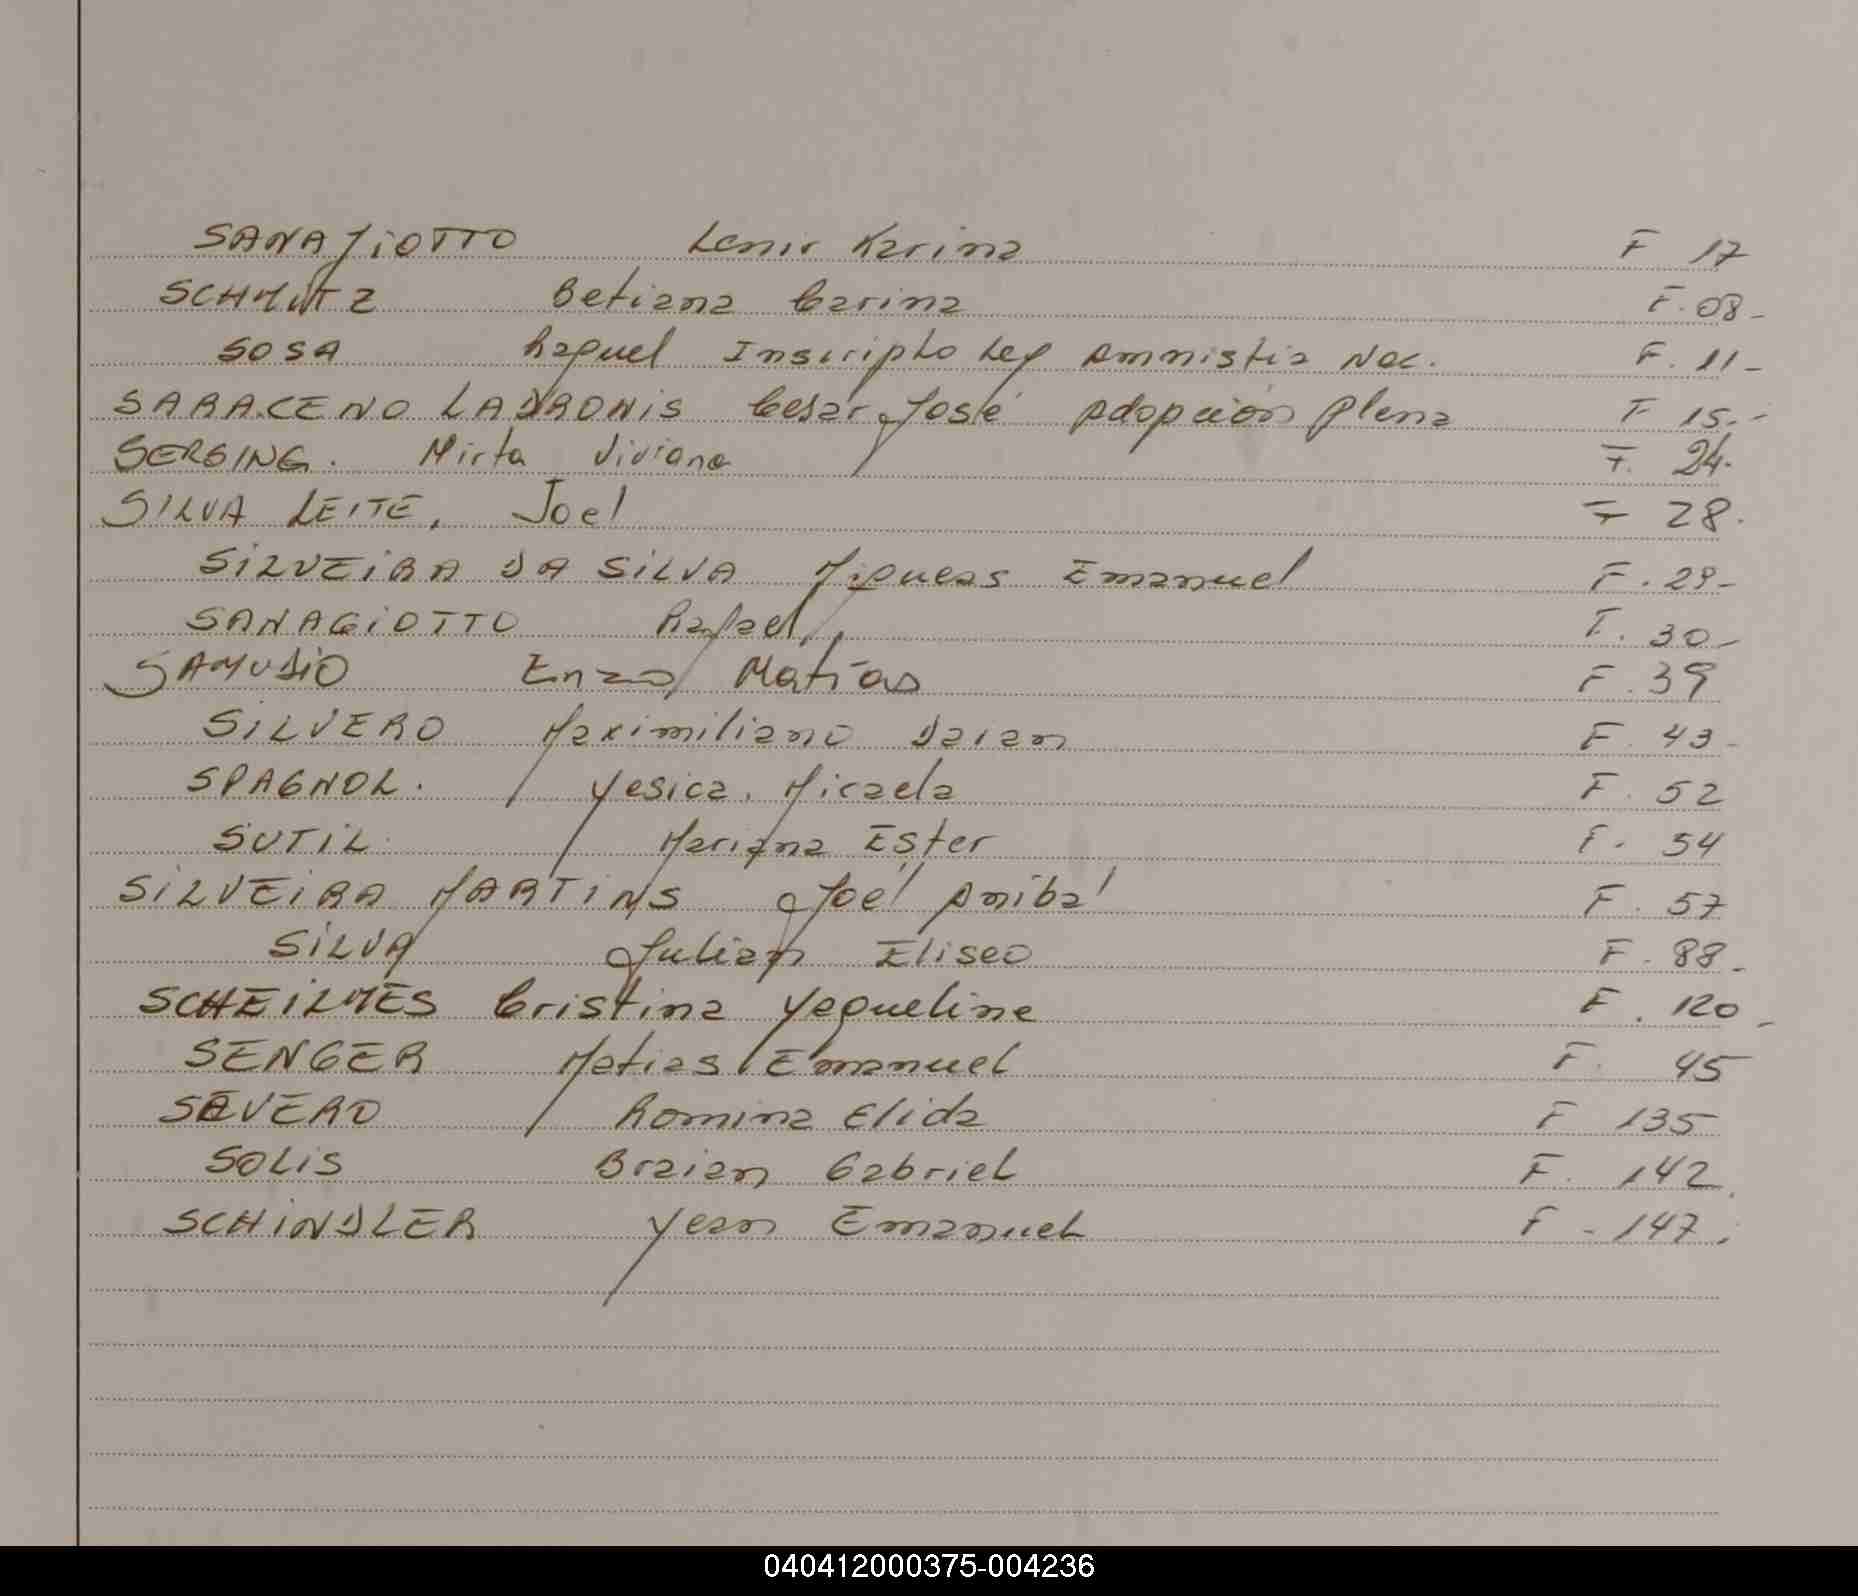 SANAGiOTTO Lenir Karina F 17
SCHMUTZ Betiana Carina F. 08-
SOSA Raquel Inscripto Ley Amnistia Nac. F. 11-
SARACENO LADRONIS Cesar José Adopción Plena F 15.-
SERGING. Mirta Viviana F. 24.
SILVA LEITE, Joel F 28.
SiLVEiRA DA SiLVA Miqueas Emanuel F. 29-
SANAGiOTTO Rafael F. 30-
SAMUDiO Enzo Matías F. 39
SiLVERO Maximiliano Daian F. 43-
SPAGNOL. Yesica. Micaela F. 52
SUTiL Mariana Ester F. 54
SiLVEiRA MARTiNS Joel Anibal F. 57
SiLVA Julian Eliseo F. 88-
SCHEiLMES Cristina Yaqueline F. 120-
SENGER Matias Emanuel F. 45
SEVERO Romina Elida F 135
SOLiS Braian Gabriel F. 142.
SCHiNDLER Yean Emanuel F - 147.
040412000375-004236